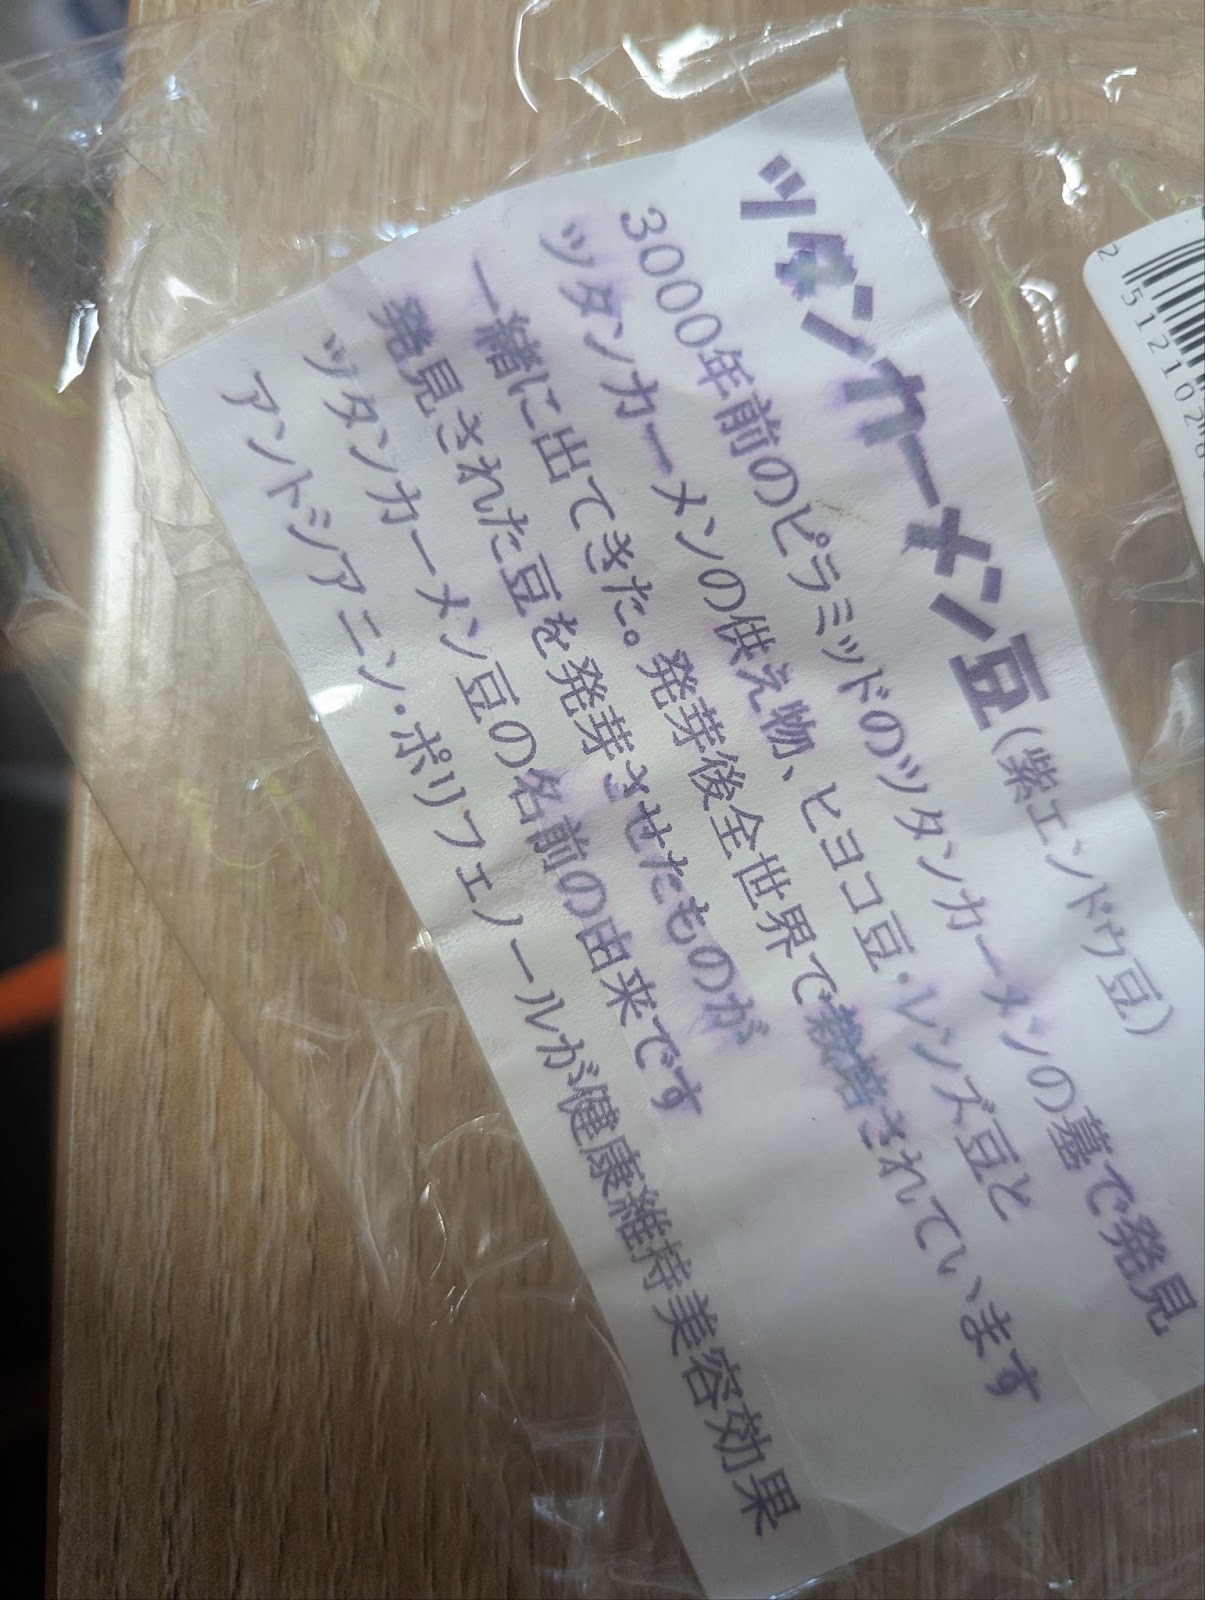 ツタンカーメン豆(紫エンドウ豆)
3000年前のピラミッドのツタンカーメンの墓で発見
ツタンカーメンの供え物、ヒヨコ豆・レンズ豆と
一緒に出てきた。発芽後全世界で栽培されています
発見された豆を発芽させたものが
ツタンカーメン豆の名前の由来です
アントシアニン・ポリフェノールが健康維持美容効果
2 512102